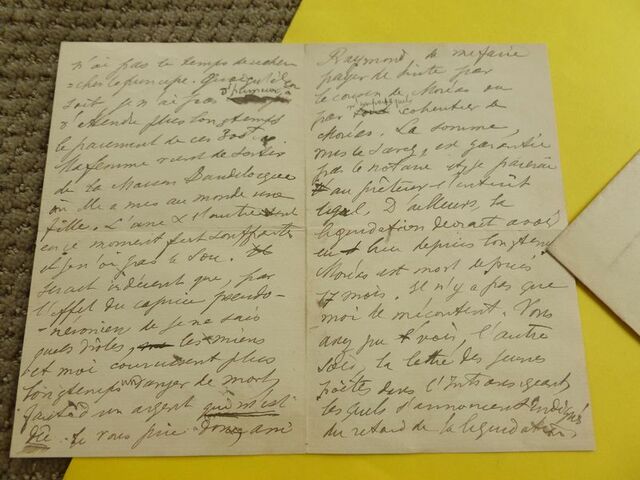 n'ai pas le temps de
cher le principe. Quoiqu'il en
soit je n'ai pas
d'attendre plus longtemps
le paiement de ces 300 f.
Ma femme vient de sortir
de la Maison Baudelocque
où elle a mis au monde une
fille. L'une & l'autre sont
en ce moment fort souffrantes
et je n'ai pas un sou. Il
serait indécent que, par
l'effet du caprice pseudo-
néronien de je ne sais
quels drôles, les miens
et moi courussent plus
longtemps un danger de mort,
faute d'un argent qui m'est
dû. Je vous prie donc, ami
Raymond de me faire
payer de suite par
le cousin de Moréas ou
par n'importe quel cohéritier de
Moréas. La somme,
vous le savez, est garantie
par le notaire et je paierai
au prêteur l'intérêt
légal. D'ailleurs, la
liquidation devrait avoir
eu lieu depuis longtemps
Moréas est mort depuis
17 mois. Il n'y a pas que
moi de mécontent. Vous
avez pu voir l'autre
fois, la lettre des jeunes
poètes dans l'Intransigeant
lesquels s'annoncent indignés
du retard de la liquidation